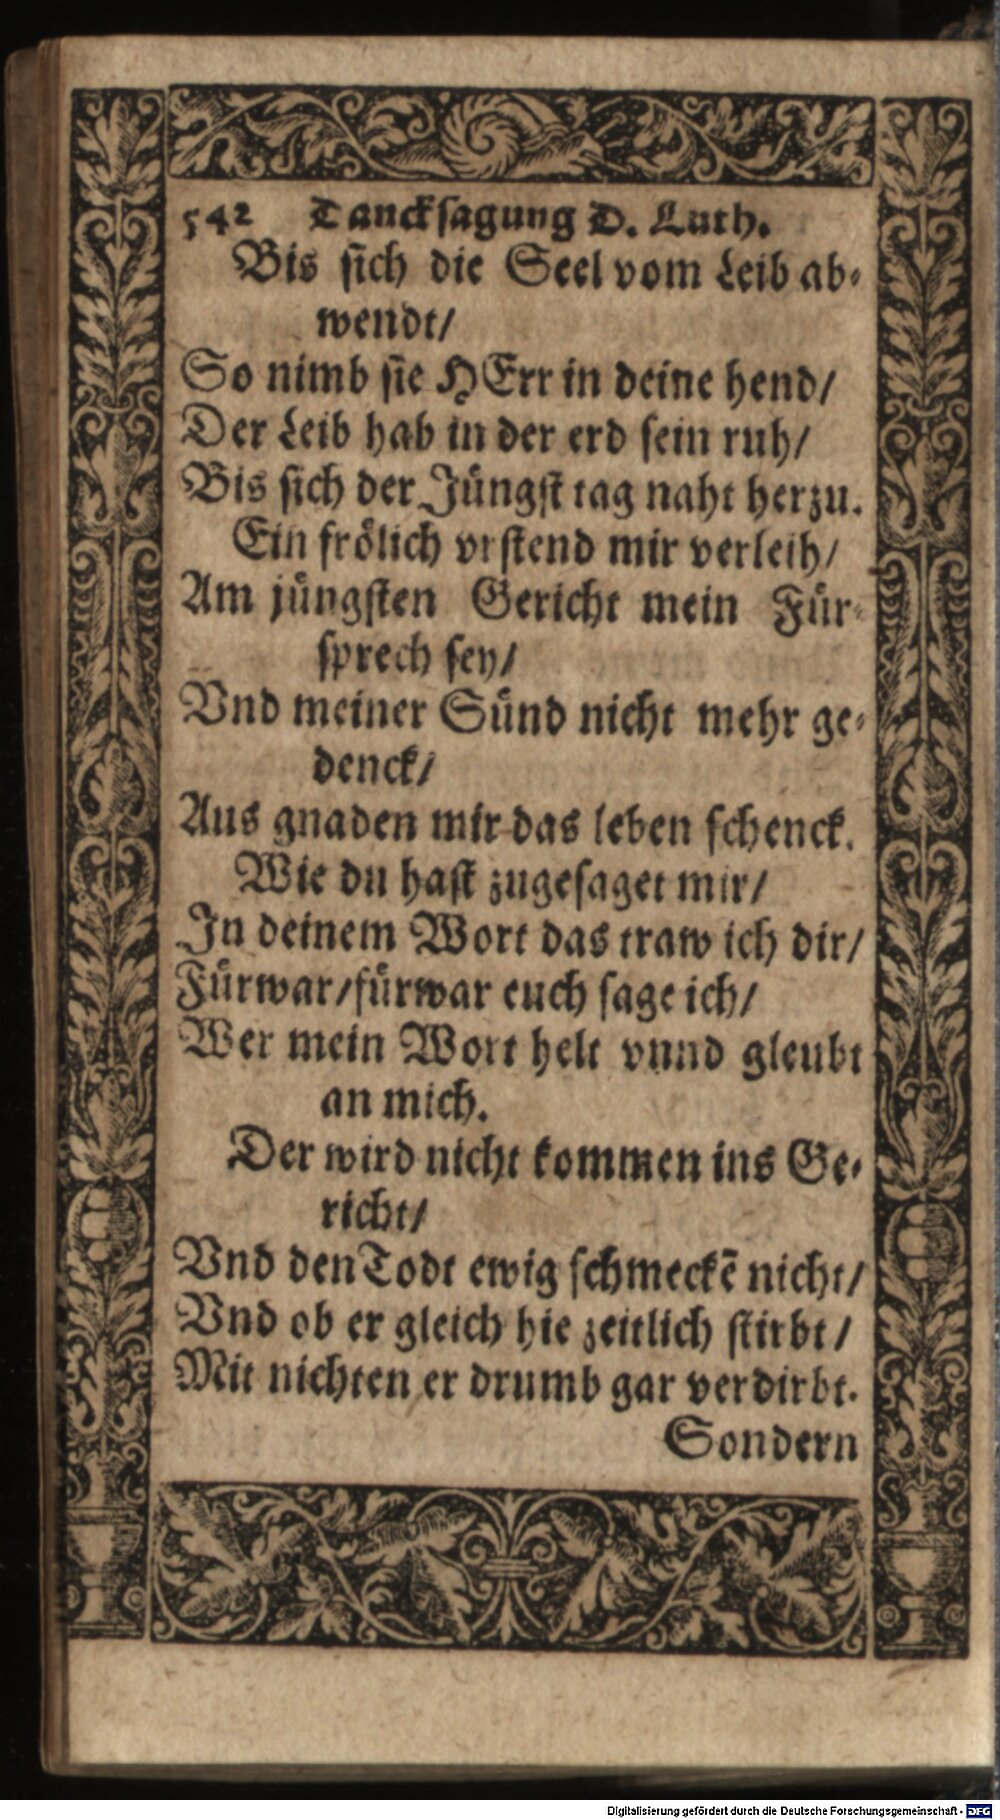 542 Tancksagung D. Luth.
Bis sich die Seel vom Leib ab-
wendt/
So nimb sie HErr in deine hend/
Der Leib hab in der erd sein ruh/
Bis sich der Jüngst tag naht herzu.
Ein frölich vrstend mir verleih/
Am jüngsten Gericht mein Für-
sprech sey/
Vnd meiner Sünd nicht mehr ge-
denck/
Aus gnaden mir das leben schenck.
Wie du hast zugesaget mir/
In deinem Wort das traw ich dir/
Fürwar/fürwar euch sage ich/
Wer mein Wort helt vnnd gleubt
an mich.
Der wird nicht kommen ins Ge-
richt/
Vnd den Todt ewig schmeckē nicht/
Vnd ob er gleich hie zeitlich stirbt/
Mit nichten er drumb gar verdirbt.
Sondern
Digitalisierung gefördert durch die Deutsche Forschungsgemeinschaft - DFG